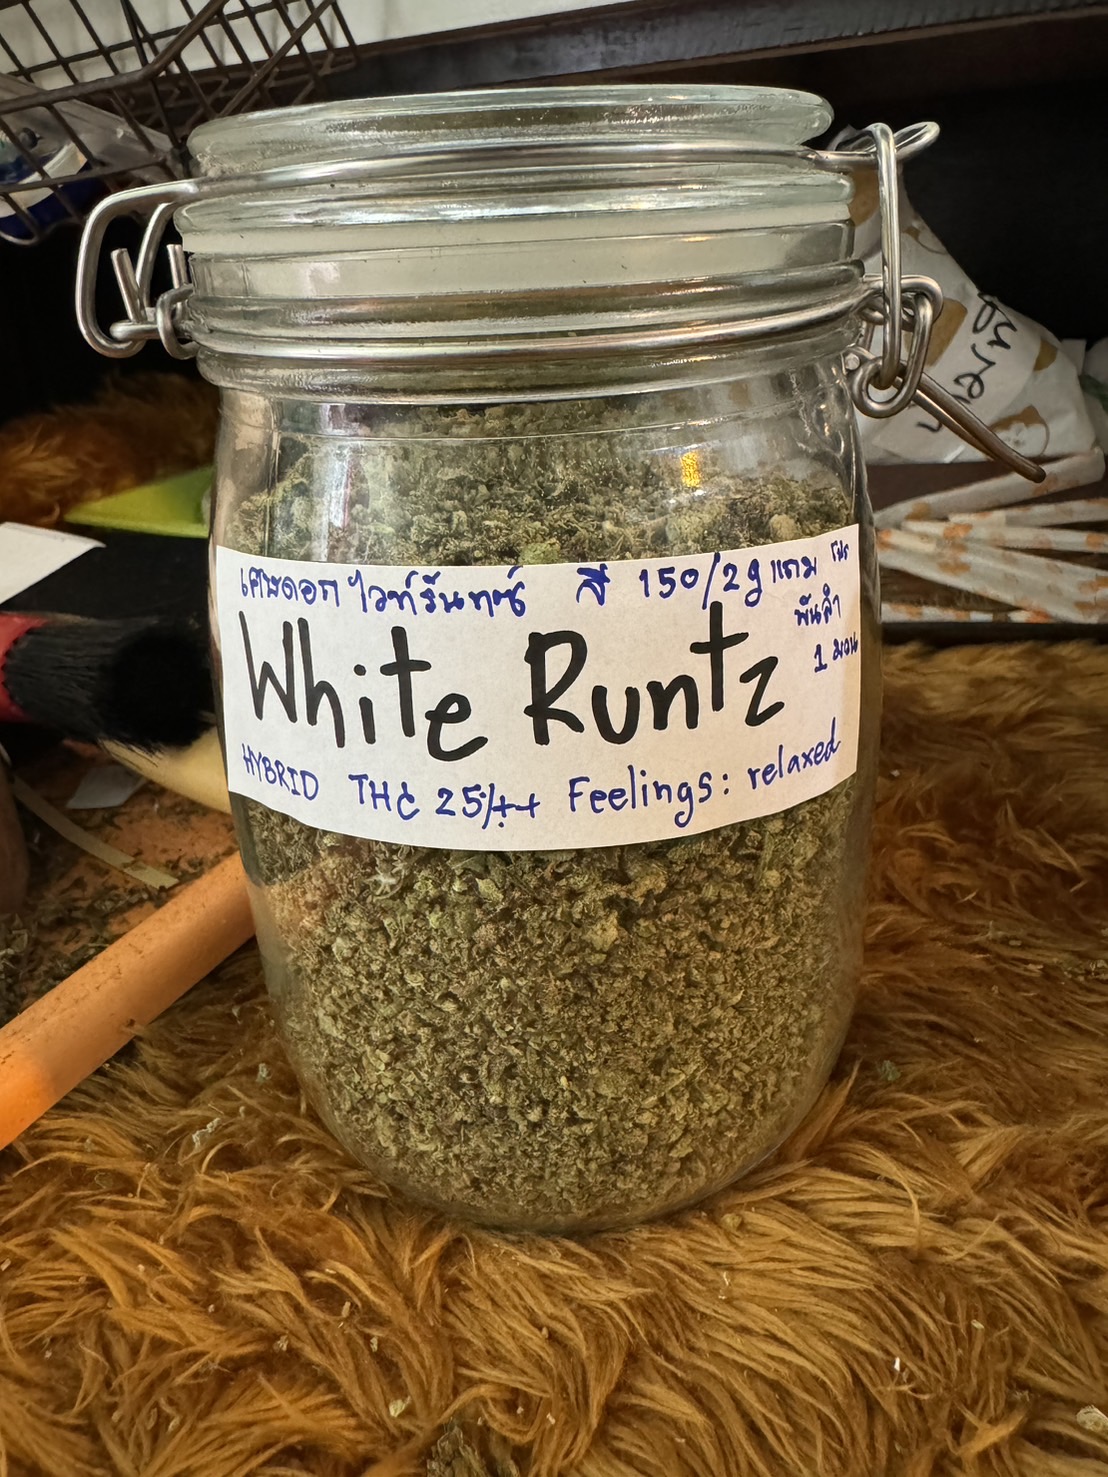 เศษดอก ไวท์รันทซ์ 150/2g แถม โปร
พันลำ
1 มวน
White Runtz
HYBRID THC 25%++ Feelings: relaxed